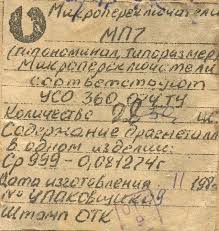 Микропереключатели
МП7
(типономинал, типоразмер)
Микропереключатели
соответствуют
УСО.360. ТУ
Количество шт.
Содержание драгметалл
в одном изделии:
Ср 999 - 0,081274г
Дата изготовления 11 198
№ УПАКОВЩИКА
Штамп ОТК